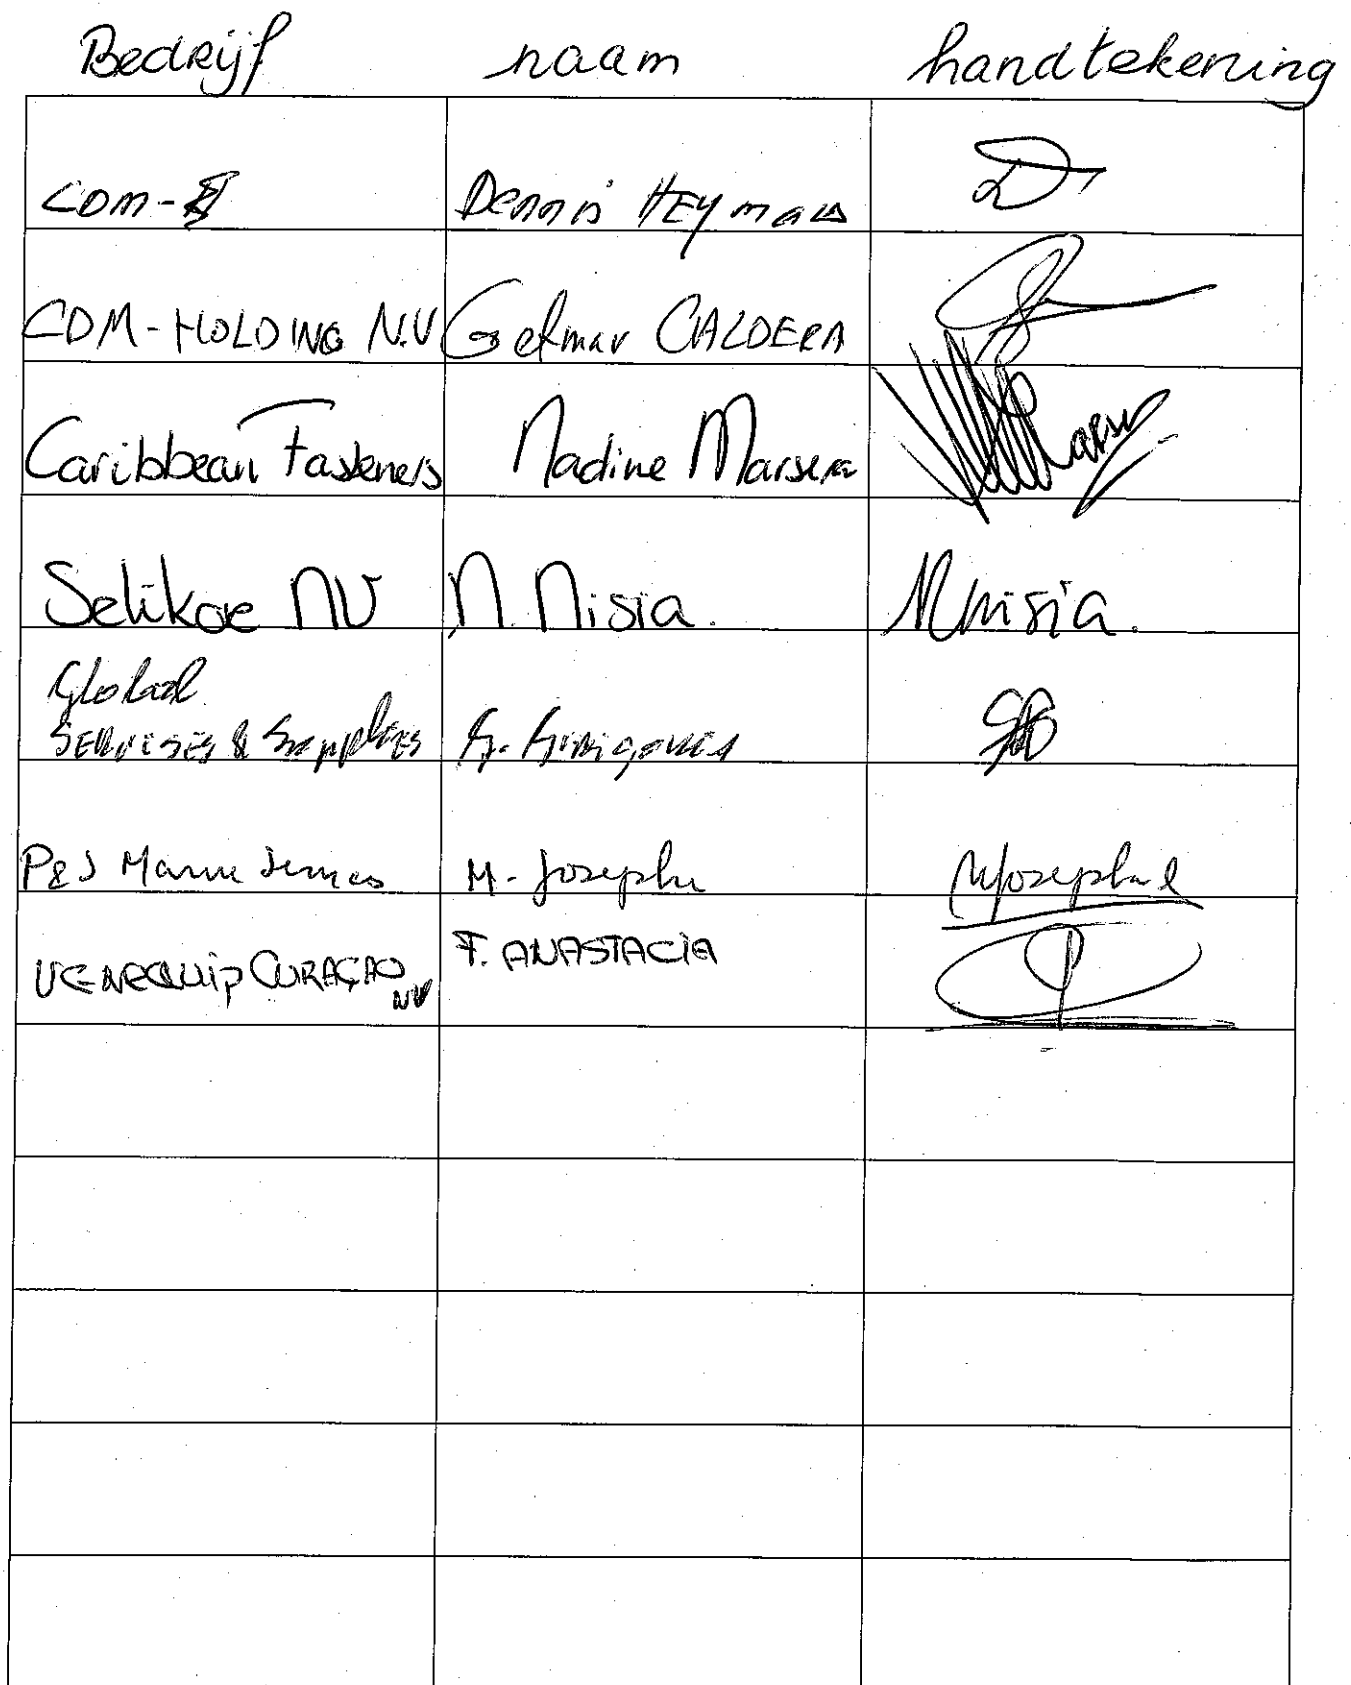 Bedrijf naam handtekening
CDM- Dennis HEYmans
CDM-HOLDING N.V Gelmar CALDERA
Caribbean Fasteners Nadine Marsera
Selikor NV N. Nisia. Nnisia.
Global
SERVISES & Supplies G.
P&S Marine Services M. Josephu
VENEQUIP CURAÇAO F. ANASTACIA
NV